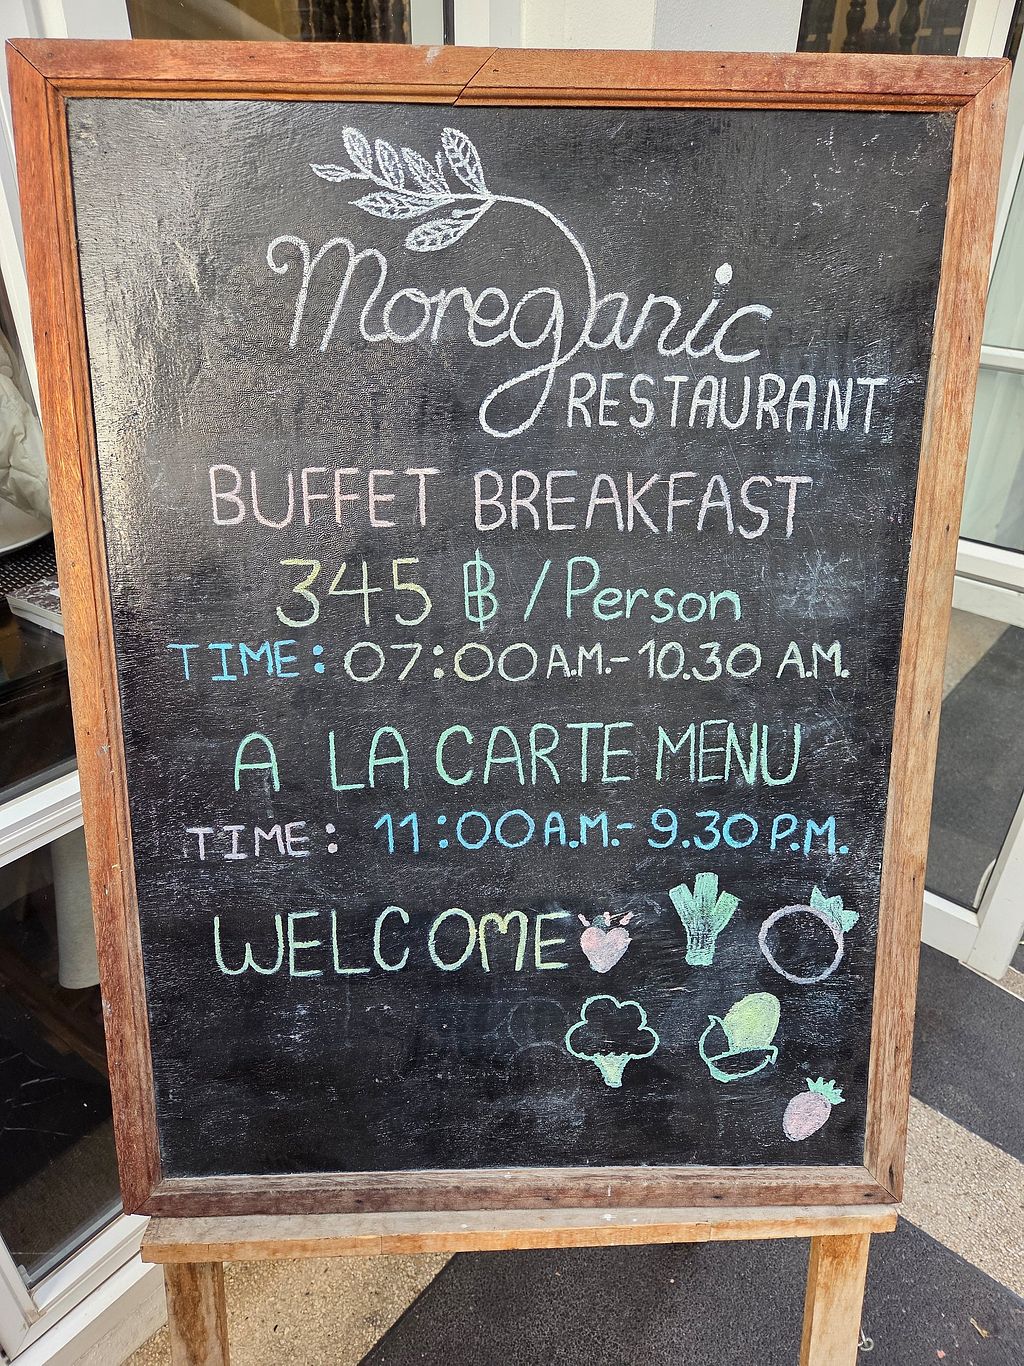 Moreganic
RESTAURANT
BUFFET BREAKFAST
345 ฿ / Person
TIME: 07:00 A.M.- 10.30 A.M.
A LA CARTE MENU
TIME: 11:00 A.M.- 9.30 P.M.
WELCOME